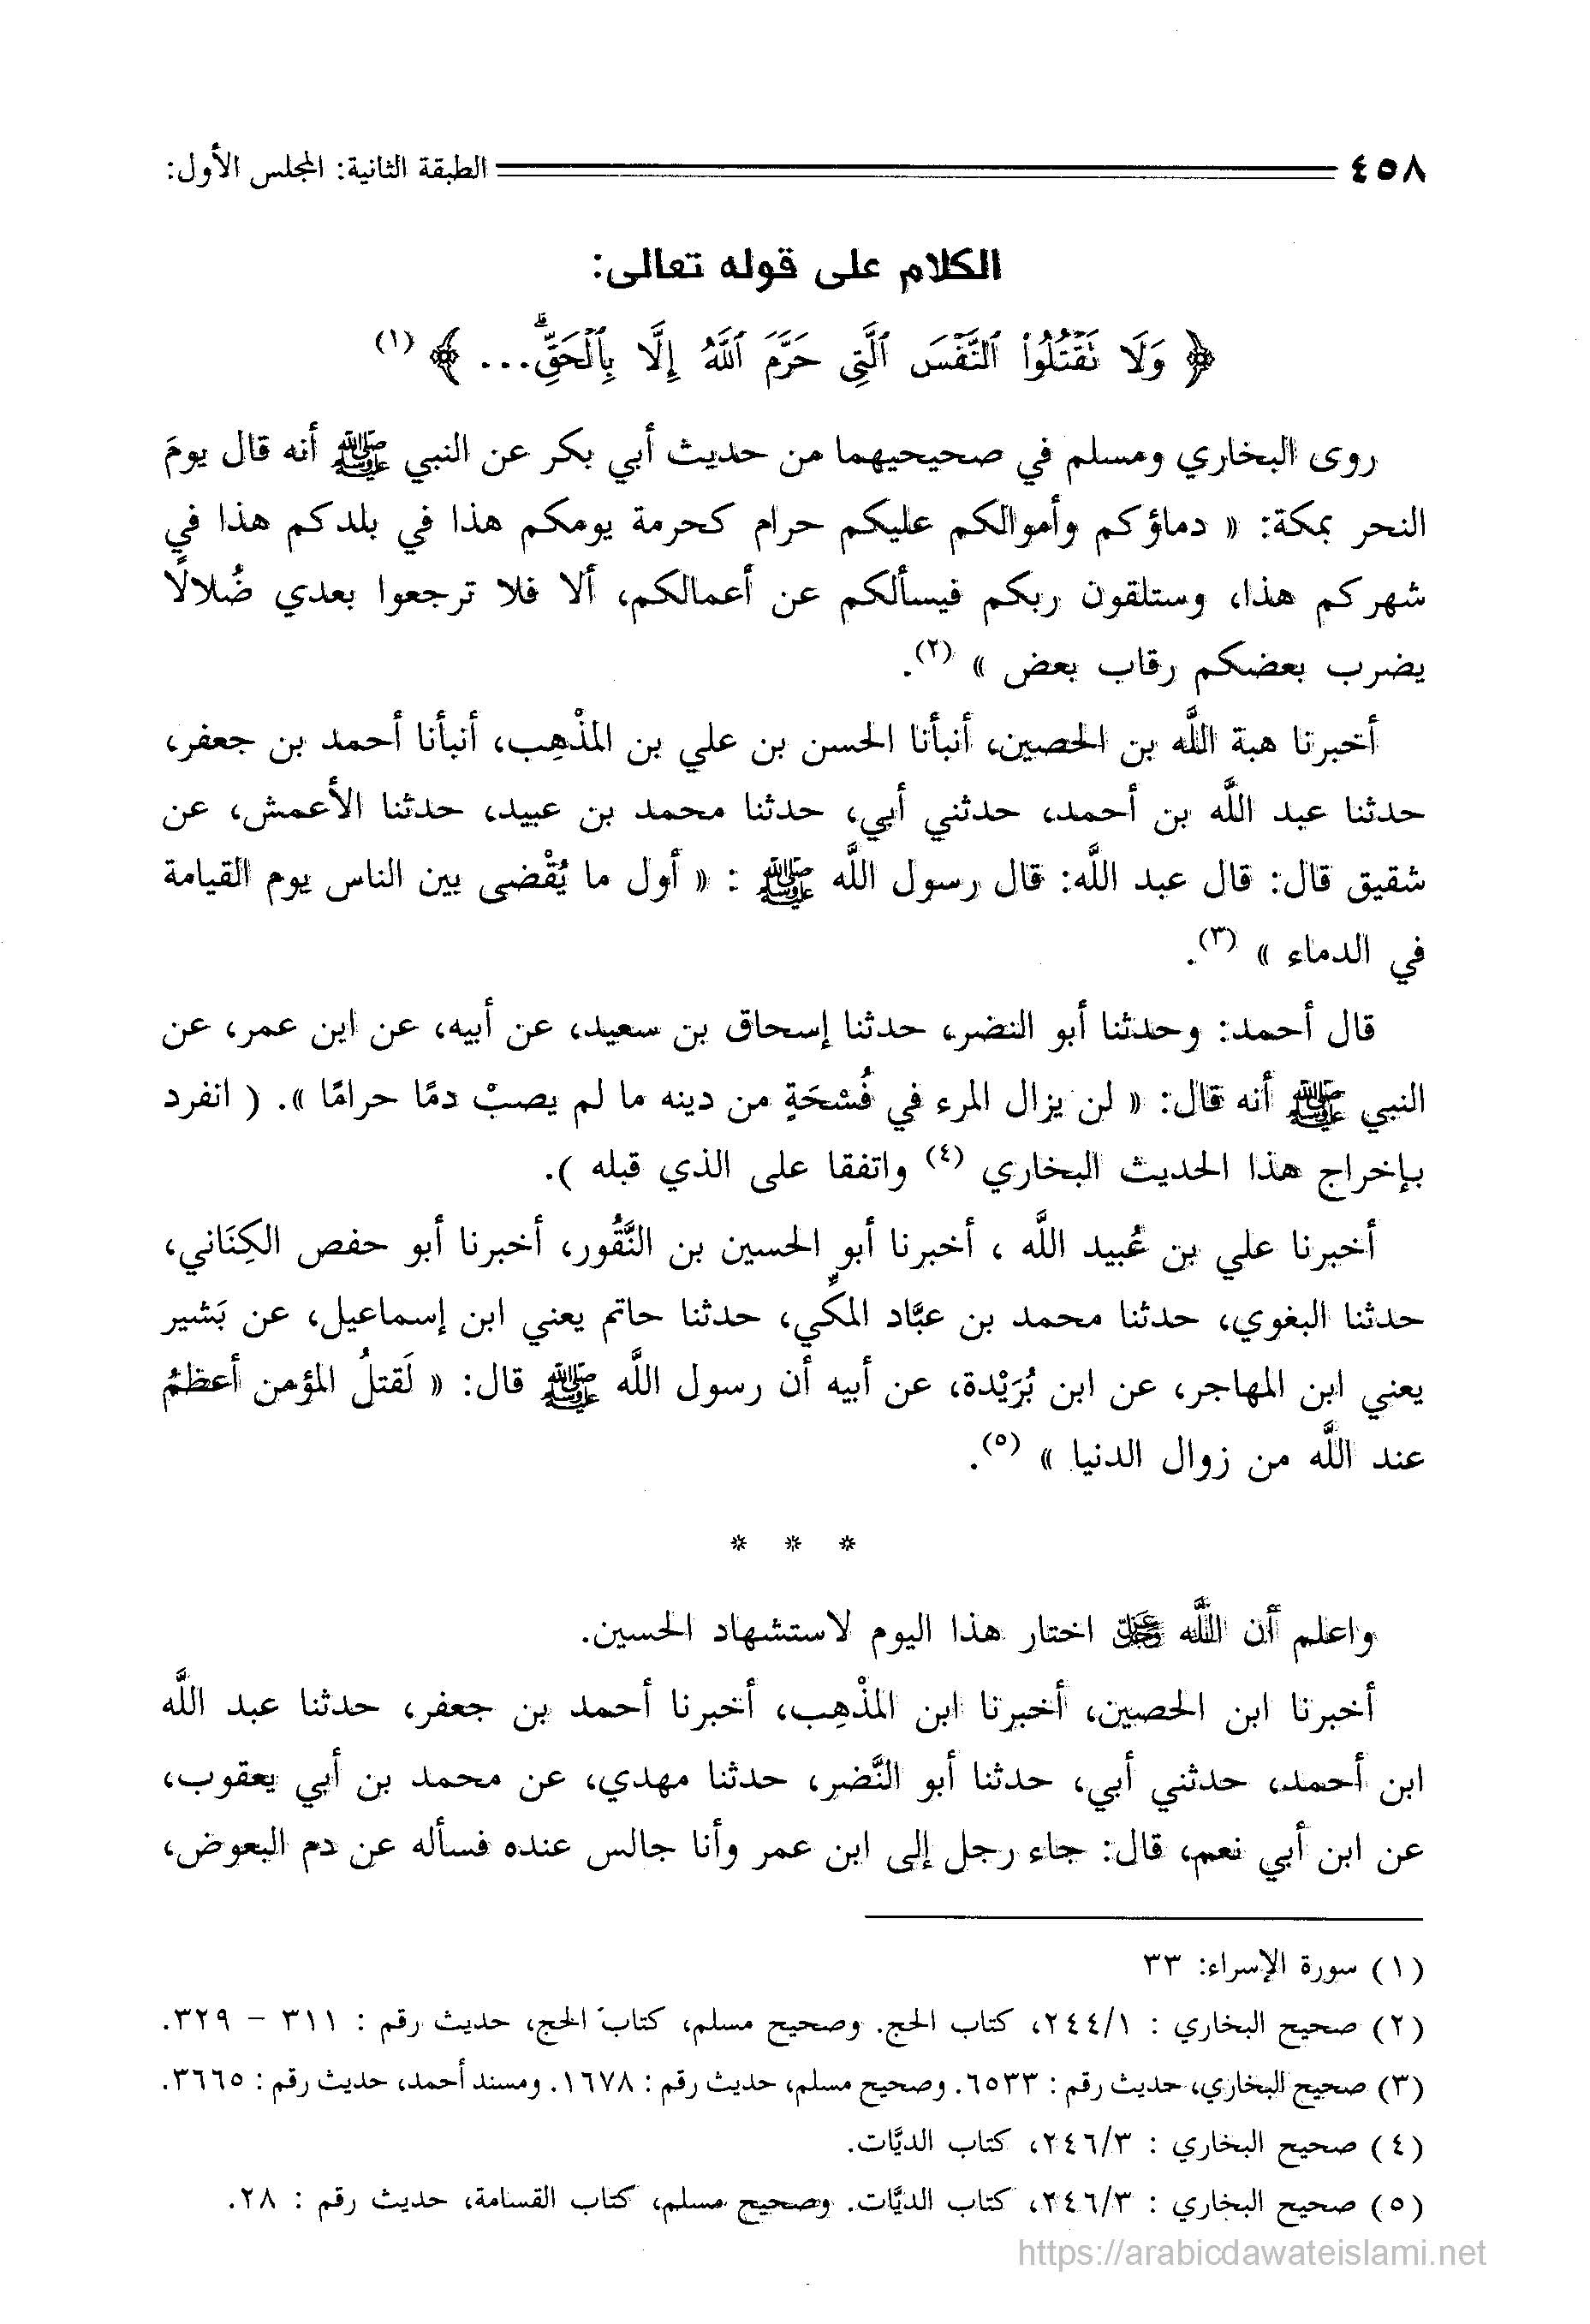 ٤٥٨ الطبقة الثانية: المجلس الأول:
الكلام على قوله تعالى:
﴿ وَلَا تَقْتُلُوا۟ ٱلنَّفْسَ ٱلَّتِى حَرَّمَ ٱللَّهُ إِلَّا بِٱلْحَقِّۗ... ﴾ (١)
روى البخاري ومسلم في صحيحيهما من حديث أبي بكر عن النبي ﷺ أنه قال يومَ
النحر بمكة: « دماؤكم وأموالكم عليكم حرام كحرمة يومكم هذا في بلدكم هذا في
شهركم هذا، وستلقون ربكم فيسألكم عن أعمالكم، ألا فلا ترجعوا بعدي ضُلالًا
يضرب بعضكم رقاب بعض » (٢).
أخبرنا هبة اللَّه بن الحصين، أنبأنا الحسن بن علي بن المذْهِب، أنبأنا أحمد بن جعفر،
حدثنا عبد اللَّه بن أحمد، حدثني أبي، حدثنا محمد بن عبيد، حدثنا الأعمش، عن
شقيق قال: قال عبد اللَّه: قال رسول اللَّه ﷺ : « أول ما يُقْضى بين الناس يوم القيامة
في الدماء » (٣).
قال أحمد: وحدثنا أبو النضر، حدثنا إسحاق بن سعيد، عن أبيه، عن ابن عمر، عن
النبي ﷺ أنه قال: « لن يزال المرء في فُسْحَةٍ من دينه ما لم يصبْ دمًا حرامًا ». ( انفرد
بإخراج هذا الحديث البخاري (٤) واتفقا على الذي قبله ).
أخبرنا علي بن عُبيد اللَّه ، أخبرنا أبو الحسين بن النَّقُور، أخبرنا أبو حفص الكِنَاني،
حدثنا البغوي، حدثنا محمد بن عبَّاد المكِّي، حدثنا حاتم يعني ابن إسماعيل، عن بَشير
يعني ابن المهاجر، عن ابن بُرَيْدة، عن أبيه أن رسول اللَّه ﷺ قال: « لَقتلُ المؤمن أعظمُ
عند اللَّه من زوال الدنيا » (٥).
* * *
واعلم أن اللَّه عَزَّ وَجَلَّ اختار هذا اليوم لاستشهاد الحسين.
أخبرنا ابن الحصين، أخبرنا ابن المذْهِب، أخبرنا أحمد بن جعفر، حدثنا عبد اللَّه
ابن أحمد، حدثني أبي، حدثنا أبو النَّضر، حدثنا مهدي، عن محمد بن أبي يعقوب،
عن ابن أبي نعم، قال: جاء رجل إلى ابن عمر وأنا جالس عنده فسأله عن دم البعوض،
(١) سورة الإسراء: ٣٣
(٢) صحيح البخاري : ٢٤٤/١، كتاب الحج. وصحيح مسلم، كتاب الحج، حديث رقم : ٣١١ – ٣٢٩.
(٣) صحيح البخاري، حديث رقم : ٦٥٣٣. وصحيح مسلم، حديث رقم : ١٦٧٨. ومسند أحمد، حديث رقم : ٣٦٦٥.
(٤) صحيح البخاري : ٢٤٦/٣، كتاب الديَّات.
(٥) صحيح البخاري : ٢٤٦/٣، كتاب الديَّات. وصحيح مسلم، كتاب القسامة، حديث رقم : ٢٨.
https://arabicdawateislami.net